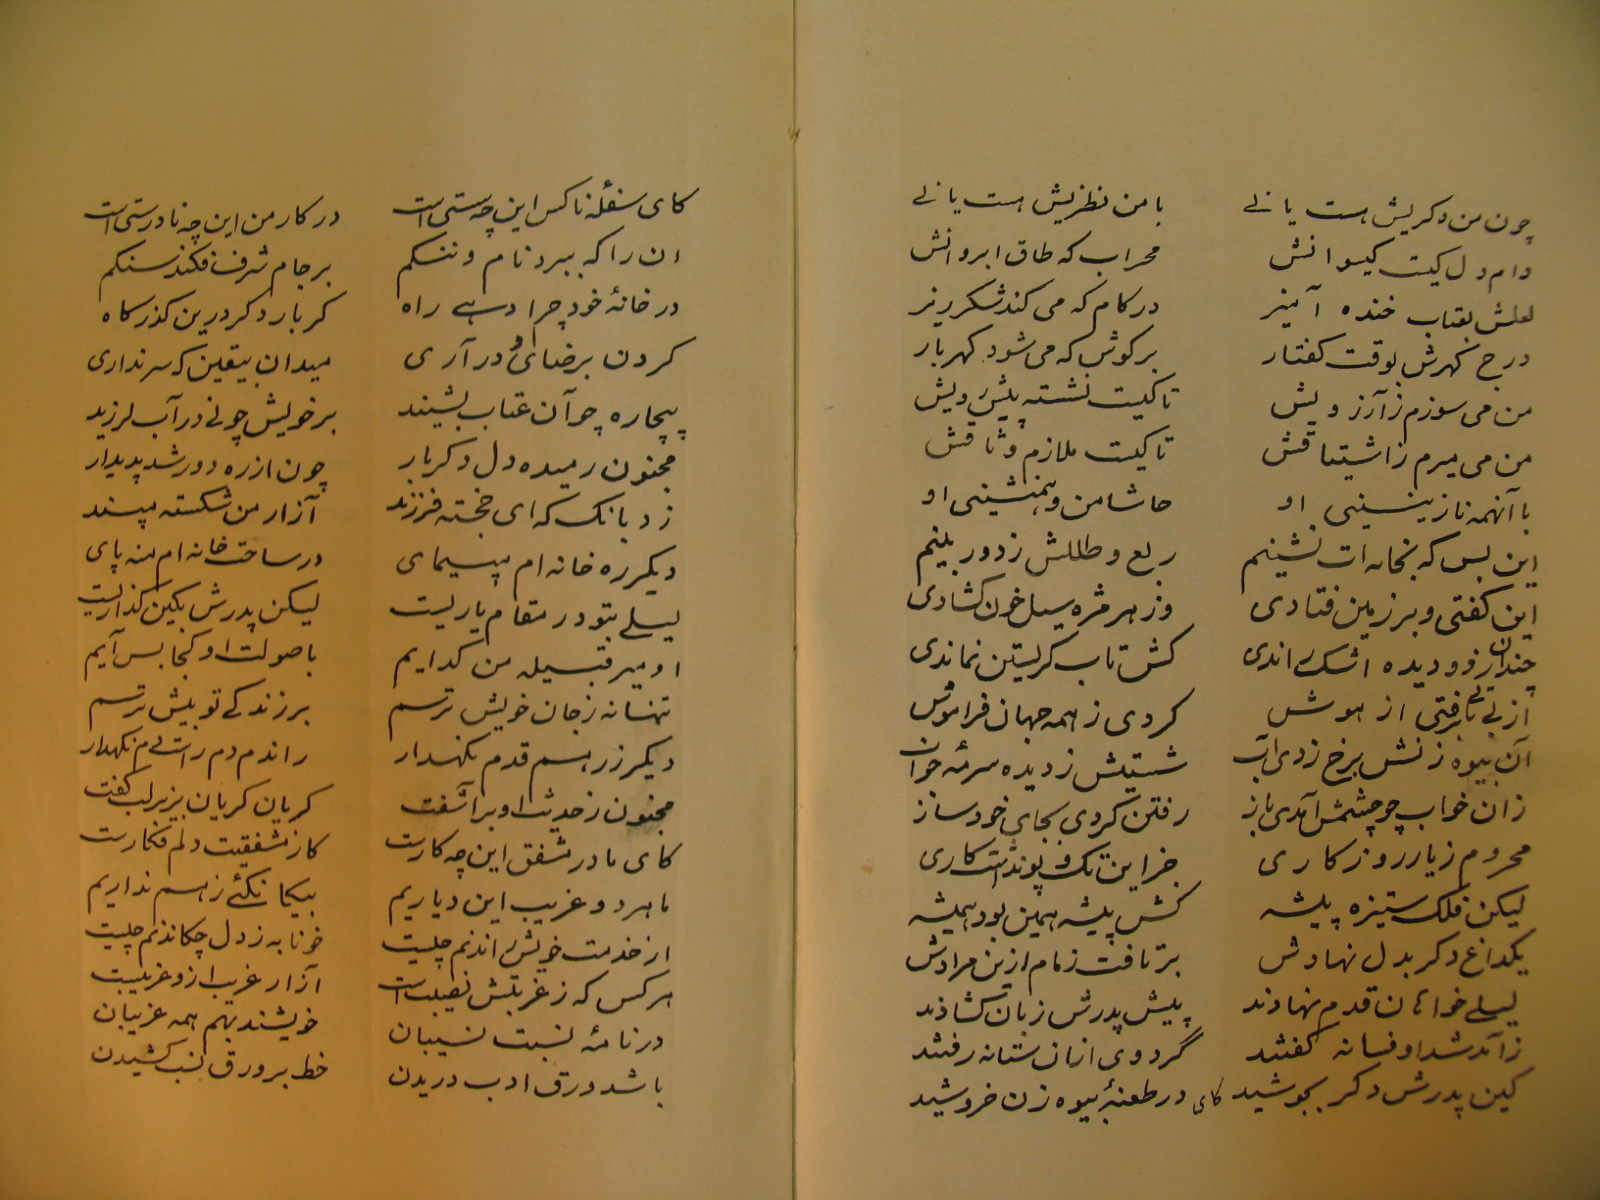 چون من دکریش هست یا نے با من نظریش هست یا نے
دام دل کیت کیسوانش محراب که طاق ابروانش
لعلش بقتاب خنده آمیز در کام که می کند شکر ریز
درج کهرش بوقت کفتار بر کوش که می شود کهر بار
من می سوزم ز آرزویش تا کیت نشسته پیش رویش
من می میرم ز اشتیاقش تا کیت ملازم وثاقش
با آنهمه نازنینیی او حاشا من و همنشینی او
این بس که بخانه ات نشینم ربع و طللش ز دور بینم
این کفتی و بر زمین فتادی وز هر مژه سیل خون کشادی
چندان ز دو دیده اشک راندی کش تاب کریستن نماندی
از بے تابے برفتی از هوش کردی ز همه جهان فراموش
آن بیوه زنش برخ زدی آب شستیش ز دیده سرمهٔ خواب
زان خواب چو چشمش آمدی باز رفتن کردی بجای خود ساز
محروم ز یار روزکاری جز این تک و پو نداشت کاری
لیکن فلک ستیزه پیشه کش پیشه همین بود همیشه
یکداغ دکر بدل نهادش برتافت زمام ازین مرادش
لیلے خواهان قدم نهادند پیش پدرش زبان کشادند
ز آمد شد او فسانه کفتند گردوی ازان ستانه رفتند
کین پدرش دکر بجوشید در طعنهٔ بیوه زن خروشید کای
کای سفلهٔ ناکس این چه سستی است در کار من این چه نادرستی است
ان را که ببرد نام و ننکم بر جام شرف فکند سنکم
در خانهٔ خود چرا دهے راه کر بار دکر درین کذرکاه
کردن برضای او در آری میدان بیقین که سر نداری
بیچاره چو آن عتاب بشنید بر خویش چو نے در آب لرزید
مجنون رمیده دل دکر بار چون از ره دور شد پدیدار
زد بانک که ای خجسته فرزند آزار من شکسته مپسند
دیکر ره خانه ام مپیمای در ساحت خانه ام منه پای
لیلے بتو در مقام یاریست لیکن پدرش بکین کذاریست
او میر قبیله من کدایم با صولت او کجا بس آیم
تنها نه ز جان خویش ترسم بر زندکے تو بیش ترسم
دیکر ز رهم قدم نکهدار راندم دم راستے دم نکهدار
مجنون ز حدیث او برآشفت کریان کریان بزیر لب کفت
کای مادر مشفق این چه کارست کاز مشفقیت دلم فکارست
ما هر دو غریب این دیاریم بیکانکئے ز هم نداریم
از خدمت خویش راندنم چیست خونابه ز دل چکاندنم چیست
هر کس که ز غربتش نصیب است آزار غریب ازو غریبست
در نامهٔ نسبت نسیبان خویشند بهم همه غریبان
باشد ورق ادب دریدن خط بر ورق نسب کشیدن